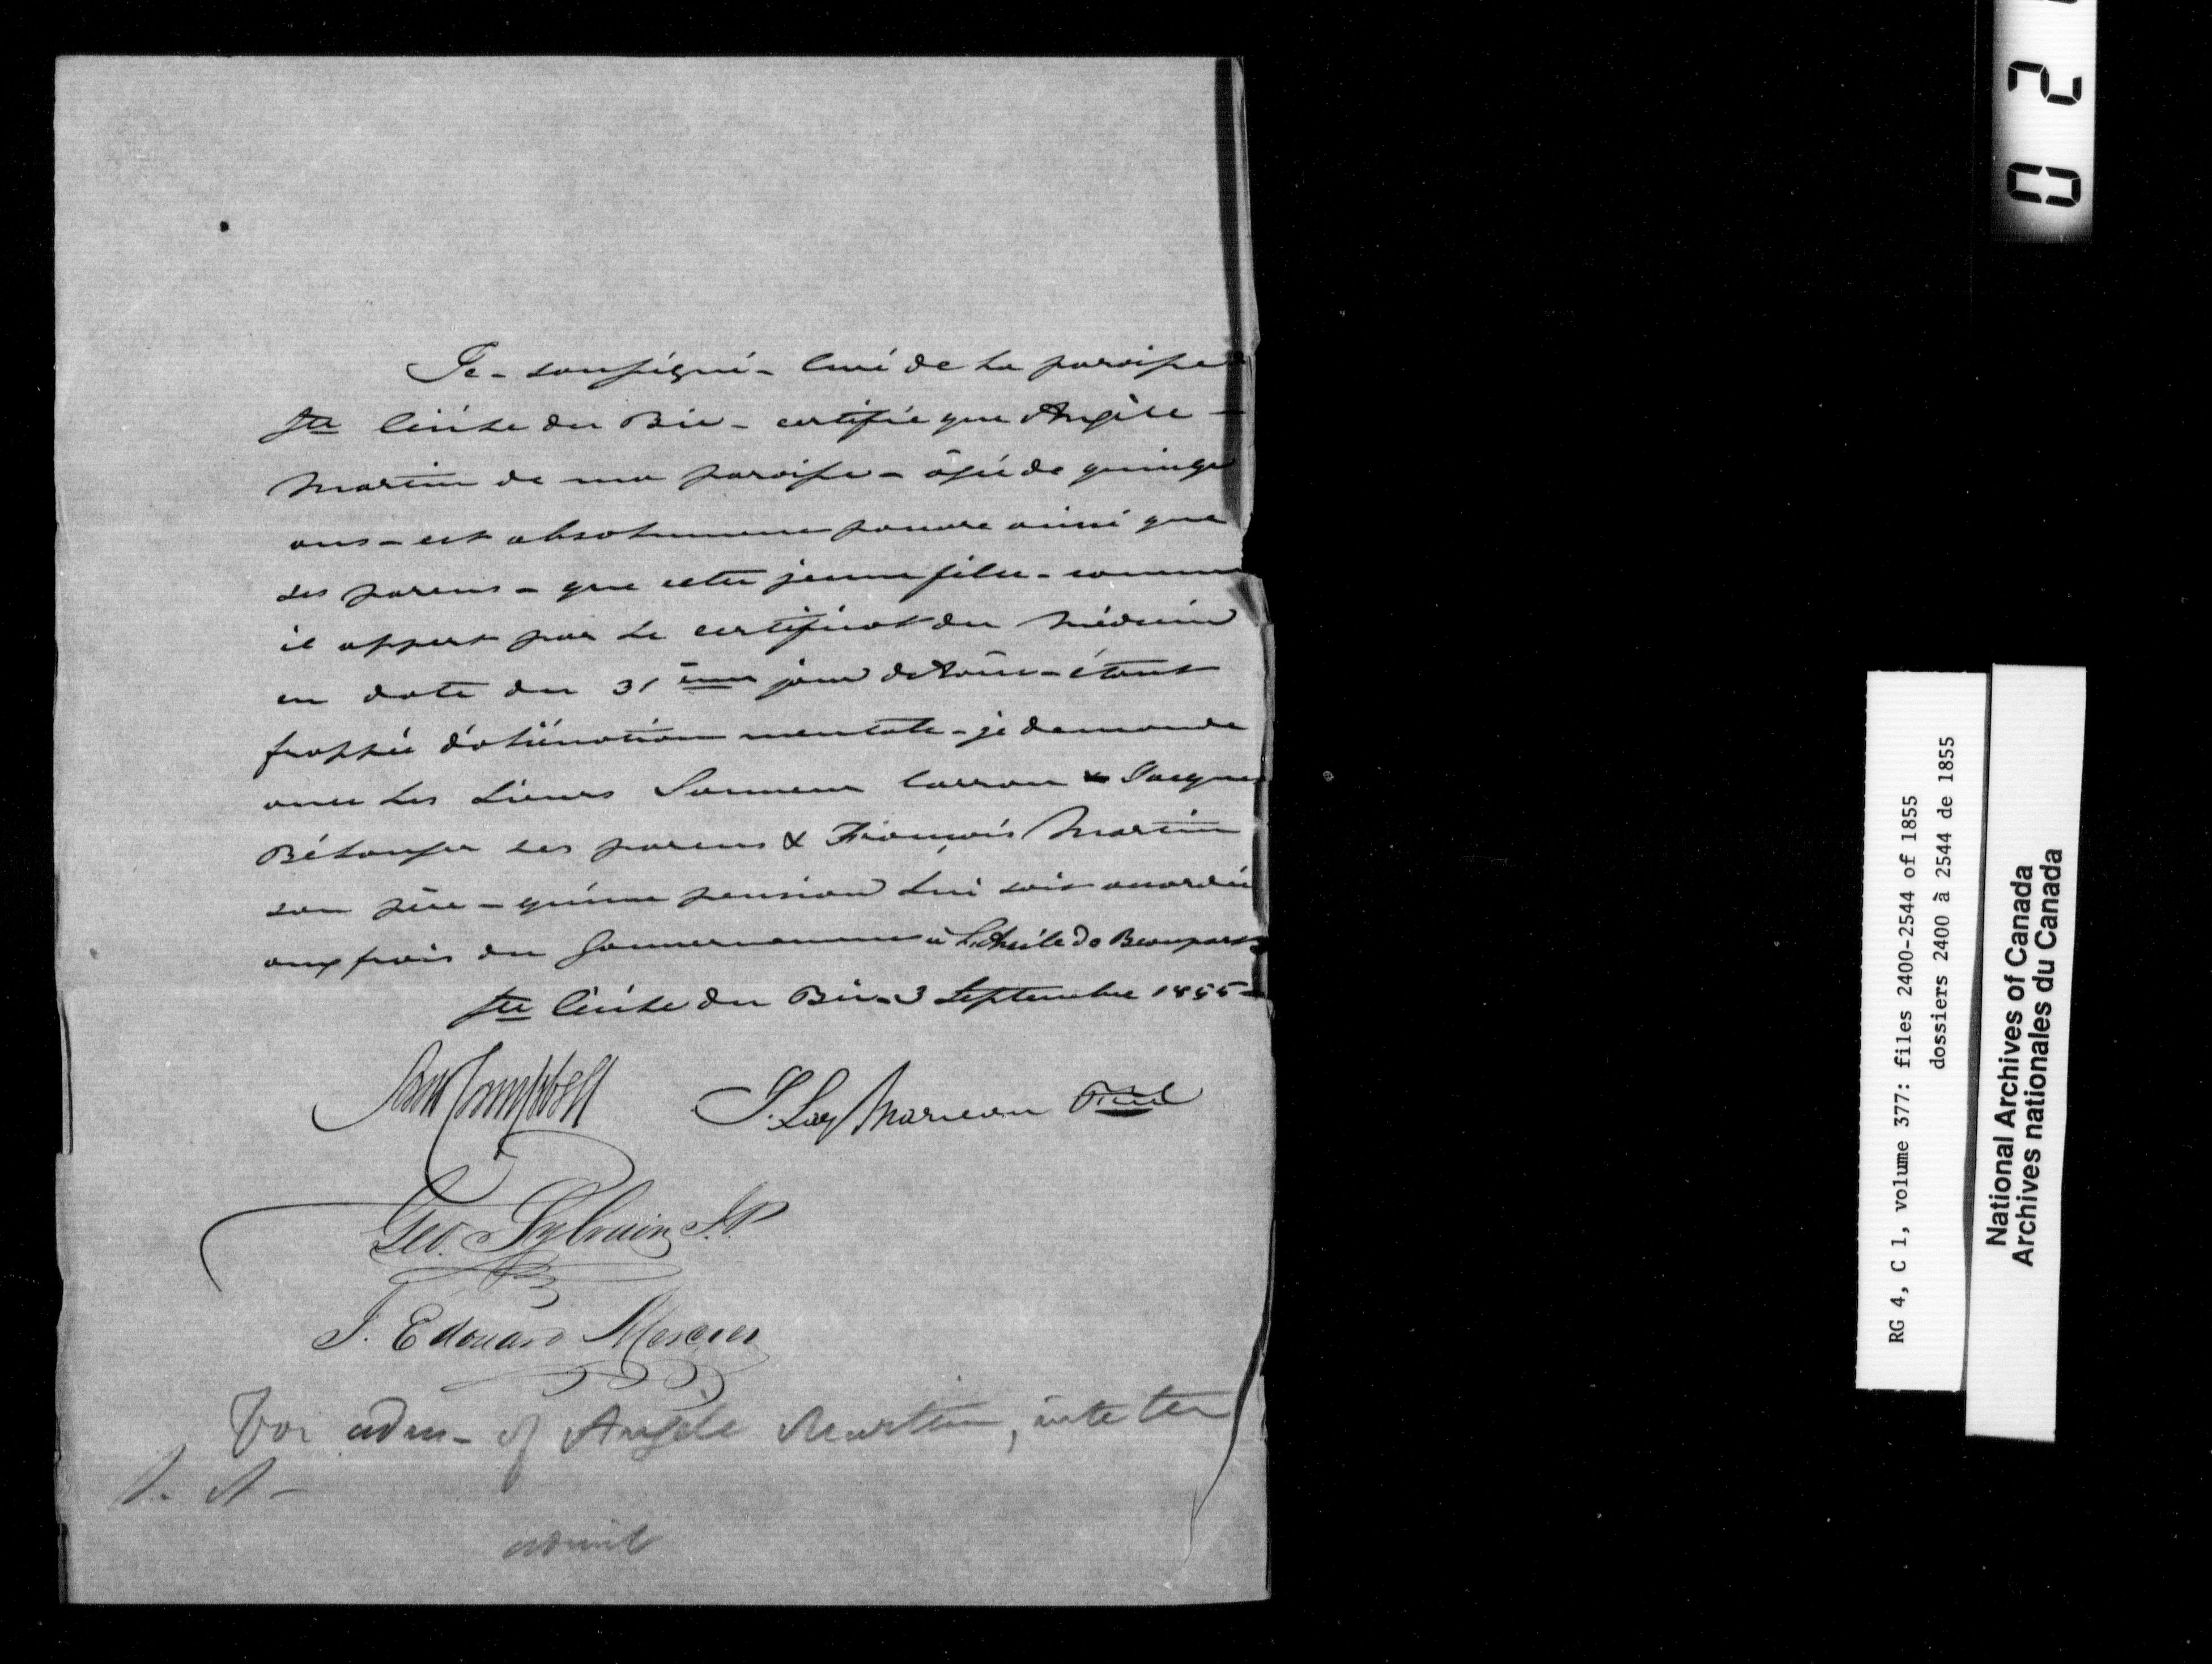 Je - soussigné - Curé de la paroisse
Ste Cécile du Bic - certifie que Angèle -
Martin de ma paroisse - âgée de quinze
ans - est absolument pauvre ainsi que
ses parens - que cette jeune fille - comme
il appert par le certificat du Médecin
en date du 31 ème jour d'Août - étant
frappée d'aliénation mentale - je demande
avec les Sieurs Carron & Jacques
Bélanger ses parens & François Martin
son père - qu'une pension lui soit accordée
aux frais du Gouvernement à l'Asile de Beauport
Ste Cécile du Bic - 3 Septembre 1855 -
Campbell
J. Ley Marceau Ptre Curé
Geo. Sylvain J.P.
J. Edouard Mercier
For adm - of Angèle Martin, into the
L. A -
admit
0 2
RG 4, C 1, volume 377: files 2400-2544 of 1855
dossiers 2400 à 2544 de 1855
National Archives of Canada
Archives nationales du Canada